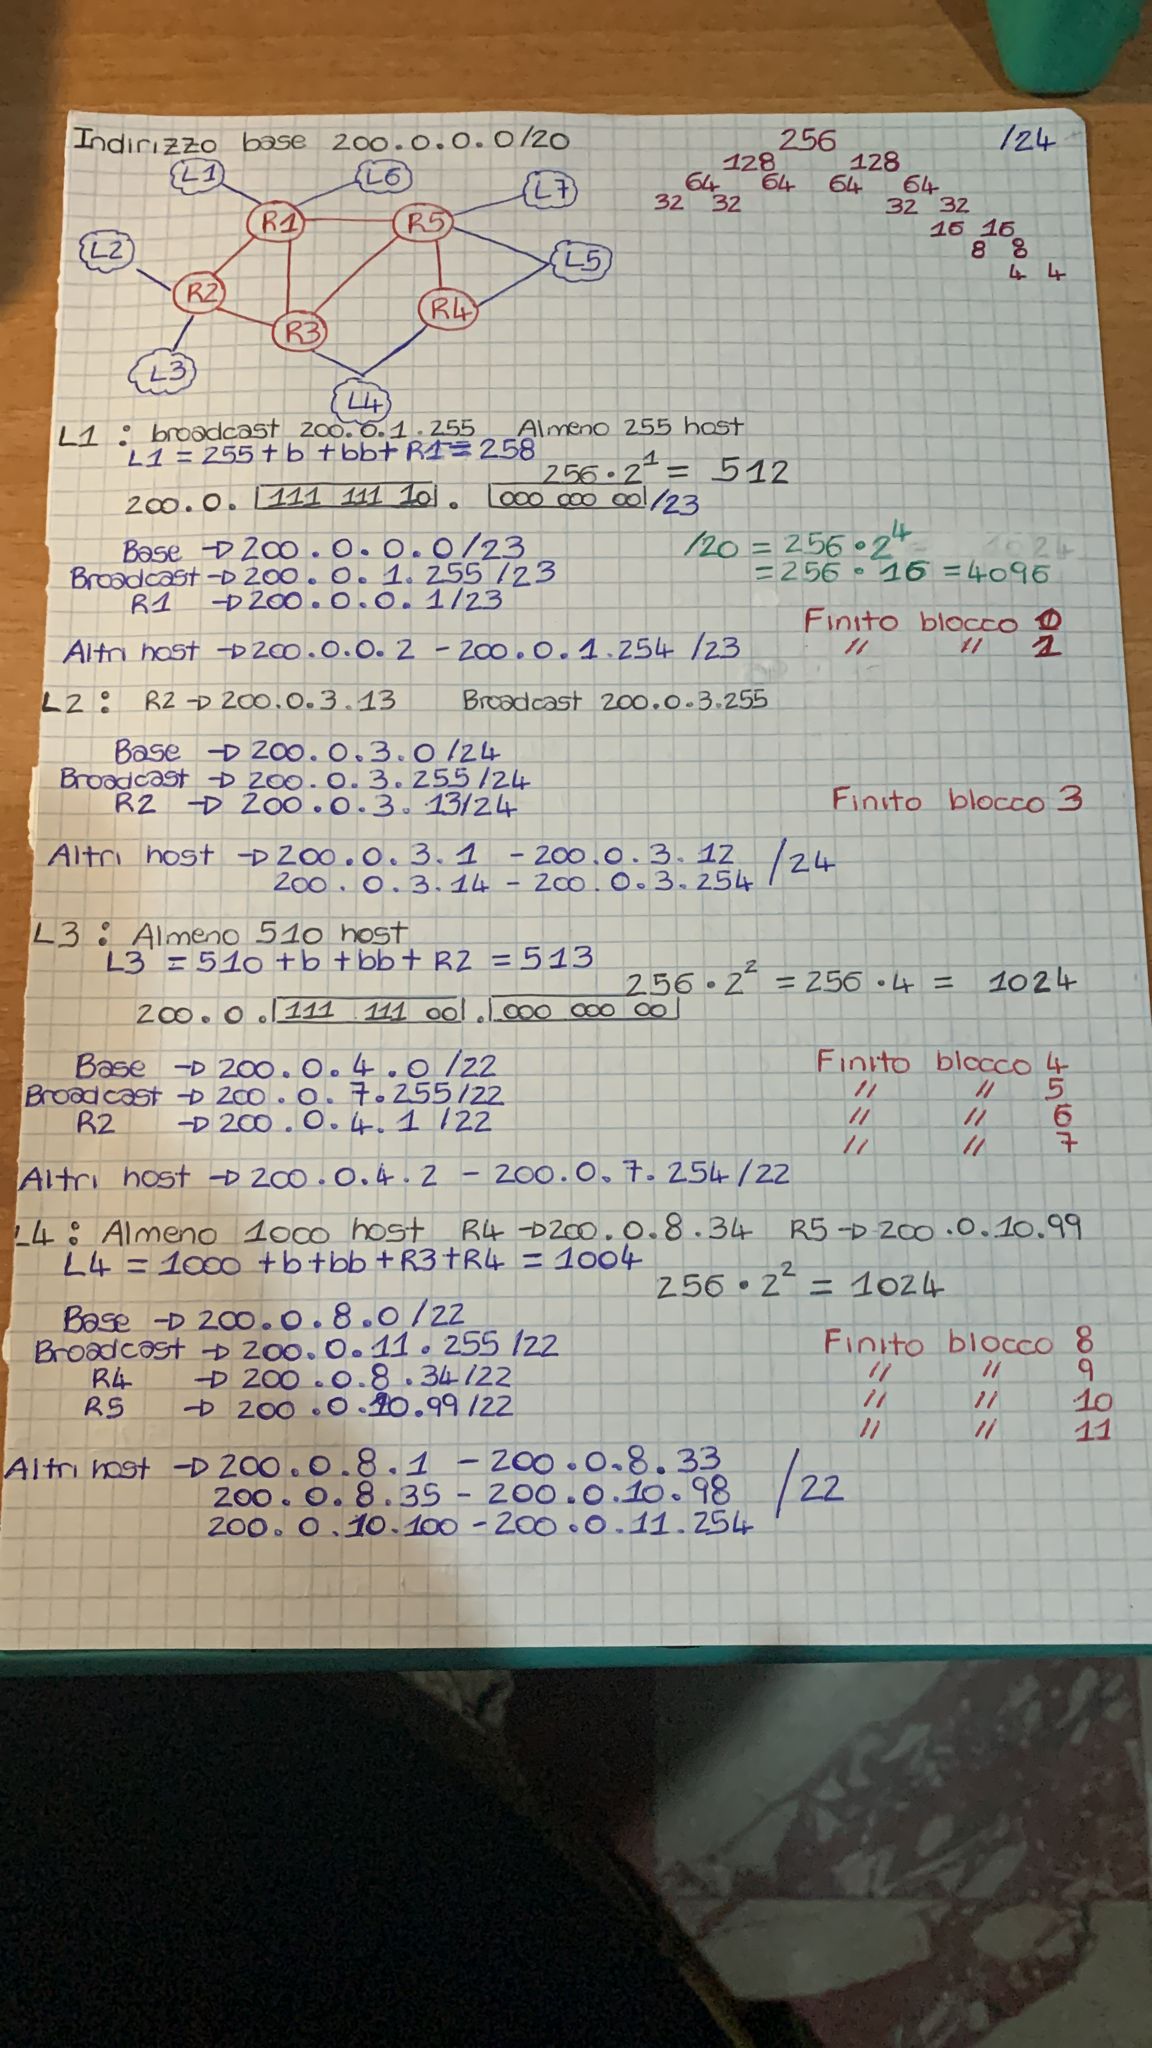 Indirizzo base 200.0.0.0/20
256 /24
128 128
64 64 64 64
32 32 32 32
16 16
8 8
4 4
L1 L6 L7
R1 R5
L2 L5
R2 R4
R3
L3
L4
L1 : broadcast 200.0.1.255 Almeno 255 host
L1 = 255 + b + bb + R1 = 258
256 · 2^1 = 512
200.0. 111 111 10 . 000 000 00 /23
Base → 200.0.0.0/23
/20 = 256 · 2^4
Broadcast → 200.0.1.255/23
= 256 · 16 = 4096
R1 → 200.0.0.1/23
Finito blocco 0
Altri host → 200.0.0.2 - 200.0.1.254 /23
" " 1
L2 : R2 → 200.0.3.13 Broadcast 200.0.3.255
Base → 200.0.3.0/24
Broadcast → 200.0.3.255/24
R2 → 200.0.3.13/24
Finito blocco 3
Altri host → 200.0.3.1 - 200.0.3.12
200.0.3.14 - 200.0.3.254 /24
L3 : Almeno 510 host
L3 = 510 + b + bb + R2 = 513
256 · 2^2 = 256 · 4 = 1024
200.0. 111 111 00 . 000 000 00
Base → 200.0.4.0/22
Finito blocco 4
Broadcast → 200.0.7.255/22
" " 5
R2 → 200.0.4.1/22
" " 6
" " 7
Altri host → 200.0.4.2 - 200.0.7.254/22
L4 : Almeno 1000 host R4 → 200.0.8.34 R5 → 200.0.10.99
L4 = 1000 + b + bb + R3 + R4 = 1004
256 · 2^2 = 1024
Base → 200.0.8.0/22
Broadcast → 200.0.11.255/22
Finito blocco 8
R4 → 200.0.8.34/22
" " 9
R5 → 200.0.10.99/22
" " 10
" " 11
Altri host → 200.0.8.1 - 200.0.8.33
200.0.8.35 - 200.0.10.98 /22
200.0.10.100 - 200.0.11.254